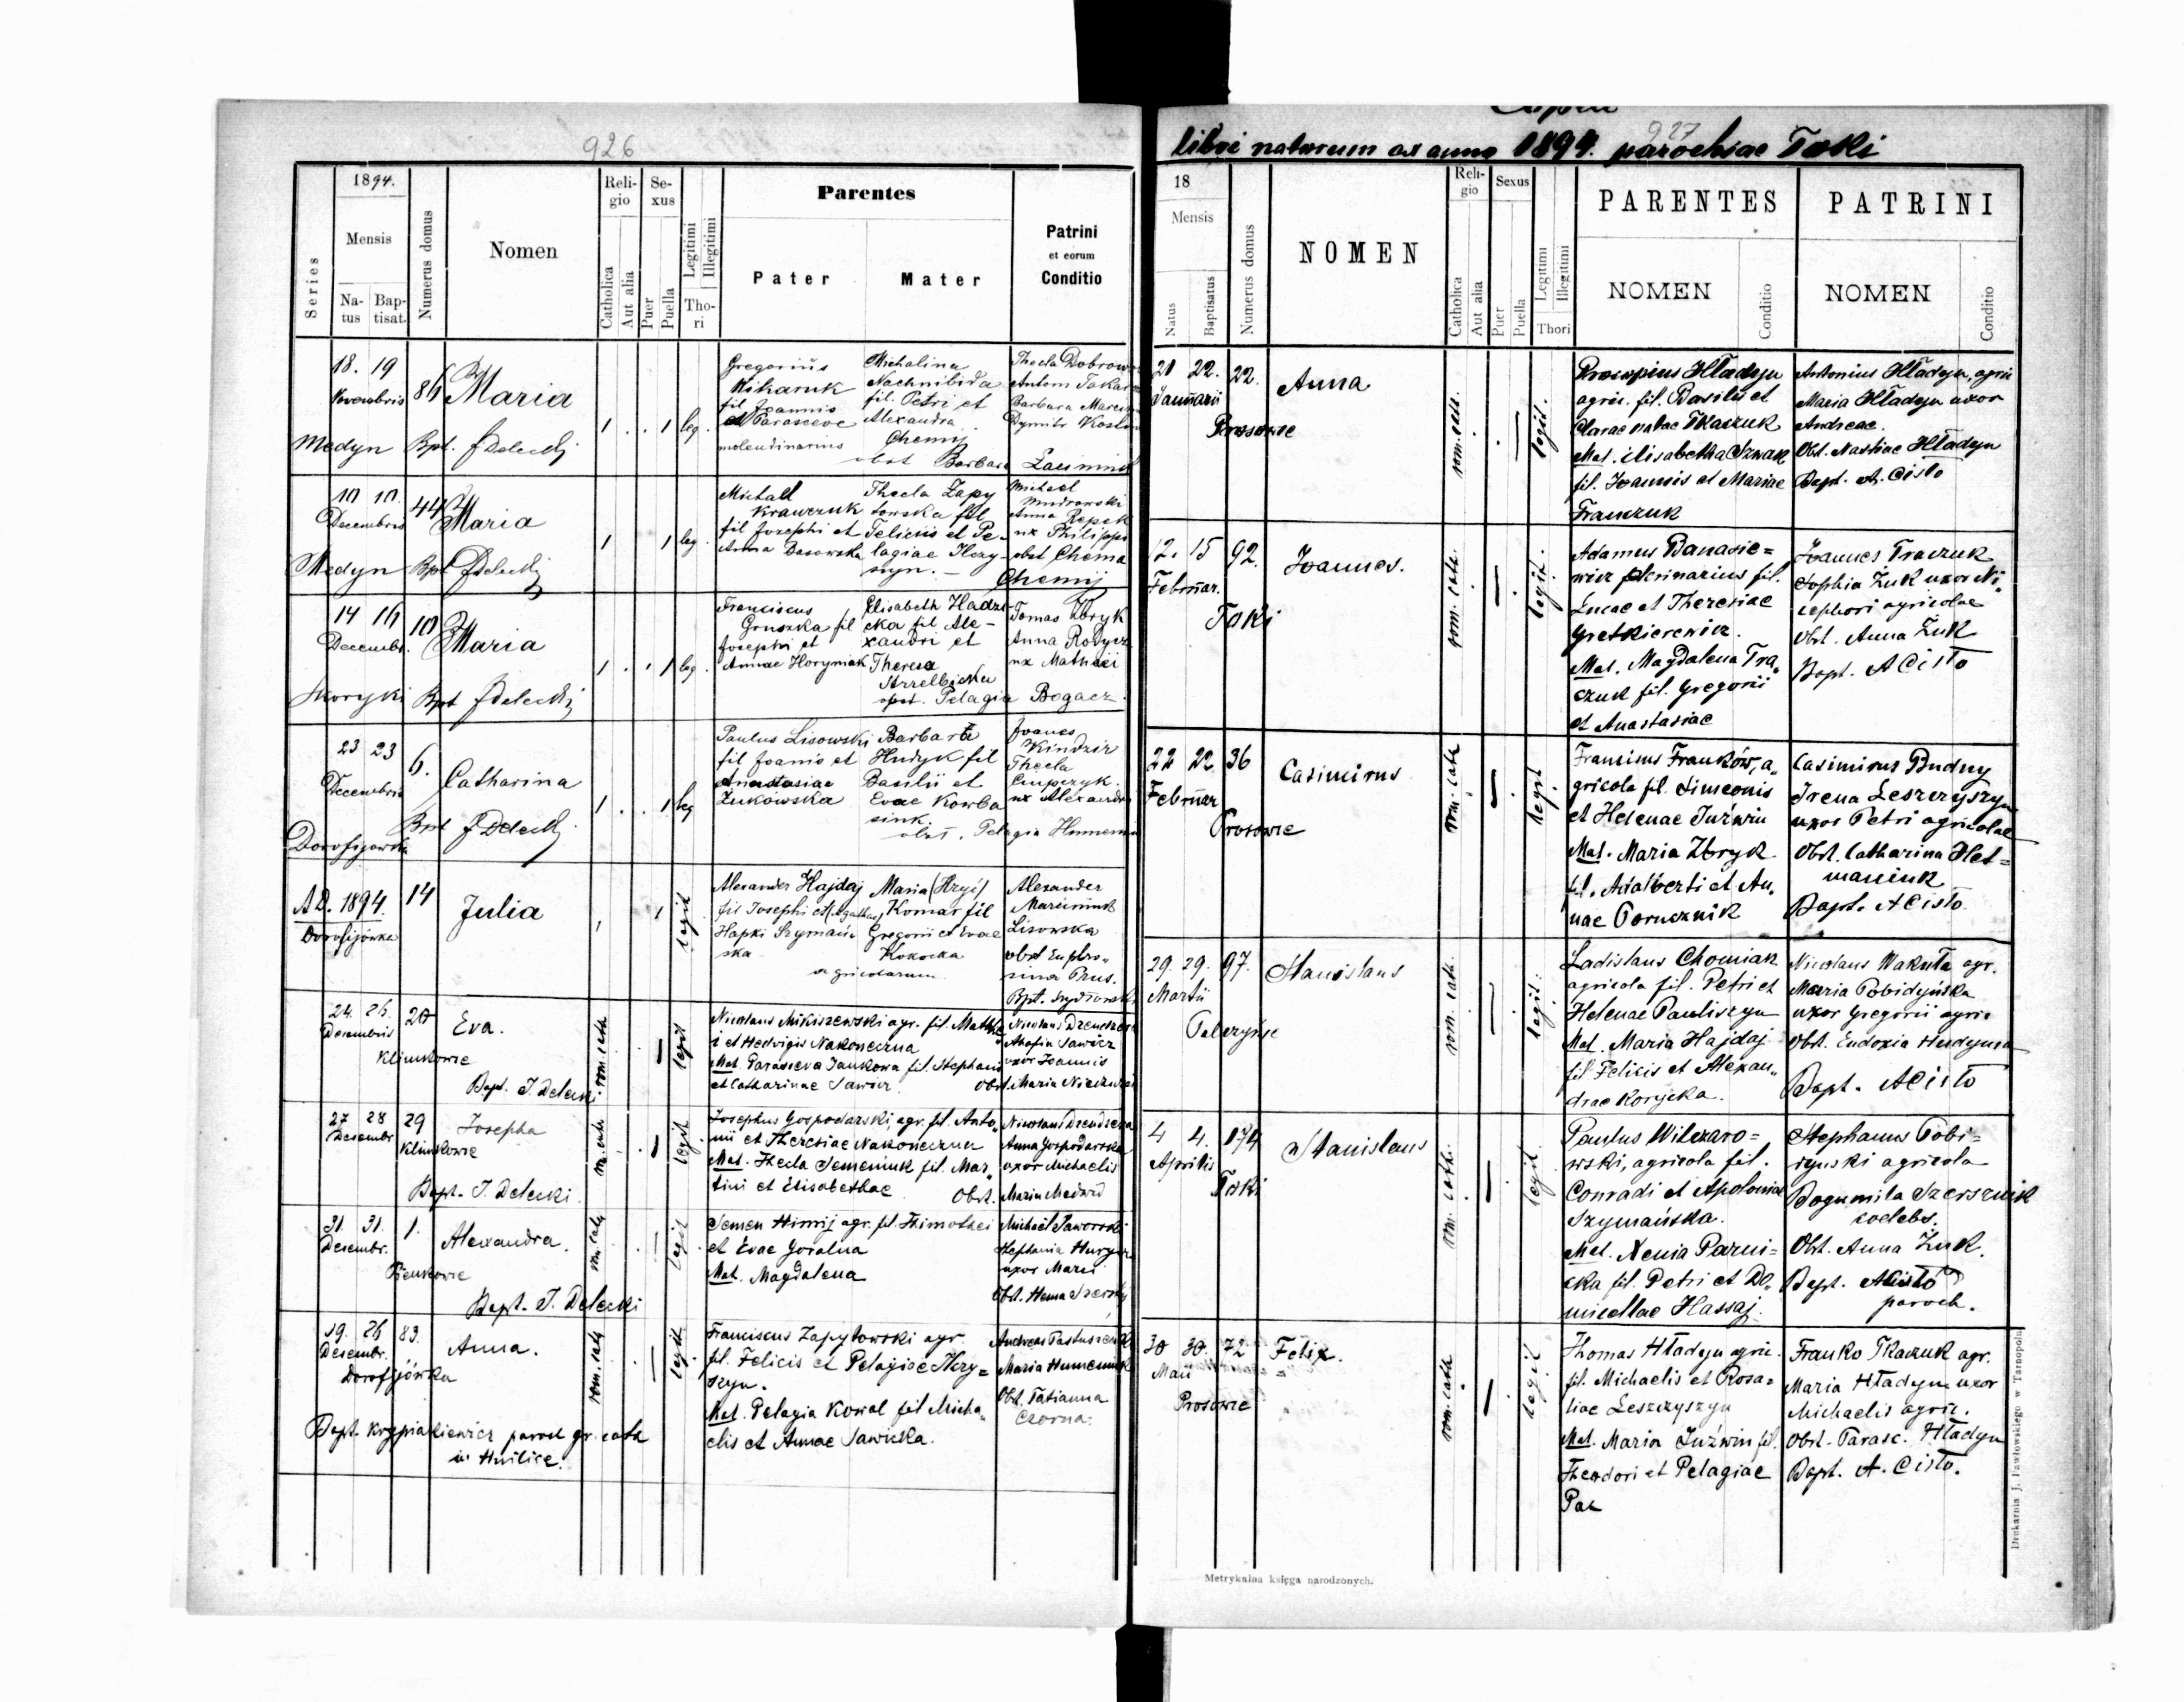 926
1894.
Series
Mensis
Natus
Baptisat.
Numerus domus
Nomen
Religio
Catholica
Aut alia
Sexus
Puer
Puella
Legitimi
Illegitimi
Thori
Parentes
Pater
Mater
Patrini
et eorum
Conditio
18. 19
Novembris
86
Maria
Medyn Bpt. J Delecki
1 . . 1 leg.
Gregorius
fil Joannis
et Parasceve
molendinarius
Michalina
Nachnibida
fil. Petri et
Alexandra
Chemij
obst Barbara
Thecla
Antoni
Barbara
Dymitr
10 10.
Decembris
44
Maria
Medyn Bpt JDelecki
1 1 leg.
Michael
Krawczuk
fil Josephi et
Anna Basowska
Thecla Zapy
towska fil
Feliciis et Pe-
lagiae Hry-
szyn. -
Michael
Mudrowski
Anna Repek
ux Philippi
obst Chema
Chemij
14 16
Decembr.
10
Maria
Skoryki Bpt JDelecki
1 . . 1 leg
Franciscus
Gruszka fil
Josephi et
Annae Horyniak
Elisabeth Hadzi-
cka fil Ale-
xandri et
Theresa
obst. Pelagia Bogacz.
Tomas Zbryk
Anna
ux Mathaei
23 23
Decembris
6.
Catharina
Bpt J Delecki
Dorofijowka
1 . . 1 leg
Paulus Lisowski
fil Joanis et
Anastasiae
Zukowska
Barbara
Hudyk fil
Basilii et
Evae Kowba
sink
obst. Pelagia
Joanes
Kindzir
Thecla
ux Alexandri
A.D. 1894.
Dorofijówka
14
Julia
1 1 legit
Alexander Hajdaj
fil Josephi et (Agathae)
Hapki Szymań
ska
Maria (Hryć)
Komar fil
Gregorii et Evae
Kokocka
agricolarum
Alexander
Lisowska
obst Euphro-
sina Prus.
Bpt.
24. 26.
Decembris
20
Eva.
Klimkowce
Bapt. J. Delecki
rom. cath
legit
Nicolaus Mikiszewski agr. fil. Matthae
i et Hedvigis Nakoneczna
Mat. Parasceva Jankowa fil. Stephani
et Catharinae Sawicz
Nicolaus
uxor Joannis
Obst. Maria
27 28
Decembr.
29
Josepha
Klimkowce
Bapt. J. Delecki.
legit
Josephus Gospodarski, agr. fil. Anto„
nii et Theresiae Nakoneczna
Mat. Thecla Semeniuk fil. Mar„
tini et Elisabethae
Nicolaus
Anna Gospodarska
uxor Michaelis
Obst. Maria Medwid
31. 31.
Decembr.
1.
Alexandra.
Pieńkowce
Bapt. J. Delecki
legit
Semen Himij agr. fil. Thimothei
et Evae Goralna
Mat. Magdalena
Michael Jaworski
Stephania
uxor Marci
Obst.
19. 26
Decembr.
83.
Anna.
Dorofijówka
rom. cath
legit
Franciscus Zapytowski agr.
fil. Felicis et Pelagiae Hry=
szyn.
Mat. Pelagia Kowal fil Micha„
elis et Annae Sawicka.
Andreas Pastuszenko
Maria Humeniuk
Obst. Tatianna
Czorna.
Bapt. Krypiakiewicz paroch gr. cath
in Hnilice.
libri natorum ex anno 1894. parochiae Toki
927
18
Mensis
Natus
Baptisatus
Numerus domus
NOMEN
Religio
Catholica
Aut alia
Sexus
Puer
Puella
Legitimi
Illegitimi
Thori
PARENTES
NOMEN
Conditio
PATRINI
NOMEN
Conditio
21 22.
Januarii
22.
Anna
Prosowce
rom. cath.
legit.
Procopius Hładyn
agric. fil. Basilii et
Clarae natae Tkaczuk
Mat. Elisabetha Szwak
fil. Joannis et Mariae
Franczuk
Antonius Hładyn, agric
Maria Hładyn uxor
Andreae.
Obst. Nastiae Hładyn
Bapt. A. Cisło
12. 15
Februar.
92.
Joannes.
Toki
rom. cath.
legit.
Adamus Banasie=
wicz fil.
Lucae et Theresiae
Gretkierewicz.
Mat. Magdalena Tra„
czuk fil. Gregorii
et Anastasiae
Joannes Traczuk
Sophia Żuk uxor Ni„
cephori agricolae
Obst. Anna Żuk
Bapt. A Cisło
22 22
Februar
36
Casimirus
Prosowce
rom. cath
legit
Francisus Franków, a„
gricola fil. Simeonis
et Helenae Juźwin
Mat. Maria Zbryk
fil. Adalberti et An„
nae Porucznik
Casimirus Budny
Irena Leszczyszyn
uxor Petri agricolae
Obst. Catharina Het=
maniuk
Bapt. A Cisło
29. 29.
Martii
97.
Stanislaus
Palczyńce
rom. cath.
legit.
Ladislaus Chomiak
agricola fil. Petri et
Helenae Pauliszyn
Mat. Maria Hajdaj
fil Felicis et Alexan„
drae Korycka.
Nicolaus Wakuła agr.
Maria Pobidyńska
uxor Gregorii agric
Obst. Eudoxia
Bapt. A Cisło
4 4.
Aprilis
174
Stanislaus
Toki
rom. cath.
legit
Paulus Wilczaro=
wski, agricola fil.
Conradi et Apoloniae
Szymańska.
Mat. Xenia Parni=
cka fil. Petri et Do„
micellae Hassaj.
Stephanus Pobi=
dyński agricola
Bogumila Szersznik
coelebs.
Obst. Anna Żuk.
Bapt. A Cisło
paroch.
30 30.
Maii
72
Felix.
Prosowce
rom. cath
legit
Thomas Hładyn agric.
fil. Michaelis et Rosa=
liae Leszczyszyn
Mat. Maria Juźwin fil.
Theodori et Pelagiae
Pac
Franko Tkaczuk agr.
Maria Hładyn uxor
Michaelis agric.
Obst. Parasc. Hładyn
Bapt. A. Cisło.
Metrykalna księga narodzonych.
Drukarnia J. Pawłowskiego w Tarnopolu